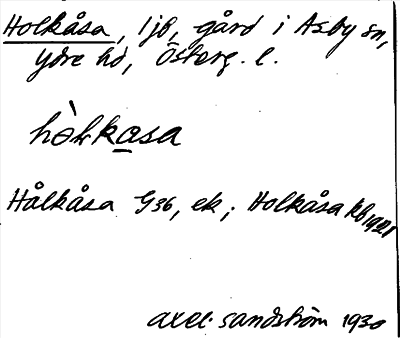 Holkåsa, ljb, gård i Asby sn,
Ydre hd, Österg. l.
hòlkasa
Hålkåsa G36, ek; Holkåsa kb 1921
Axel Sandström 1930